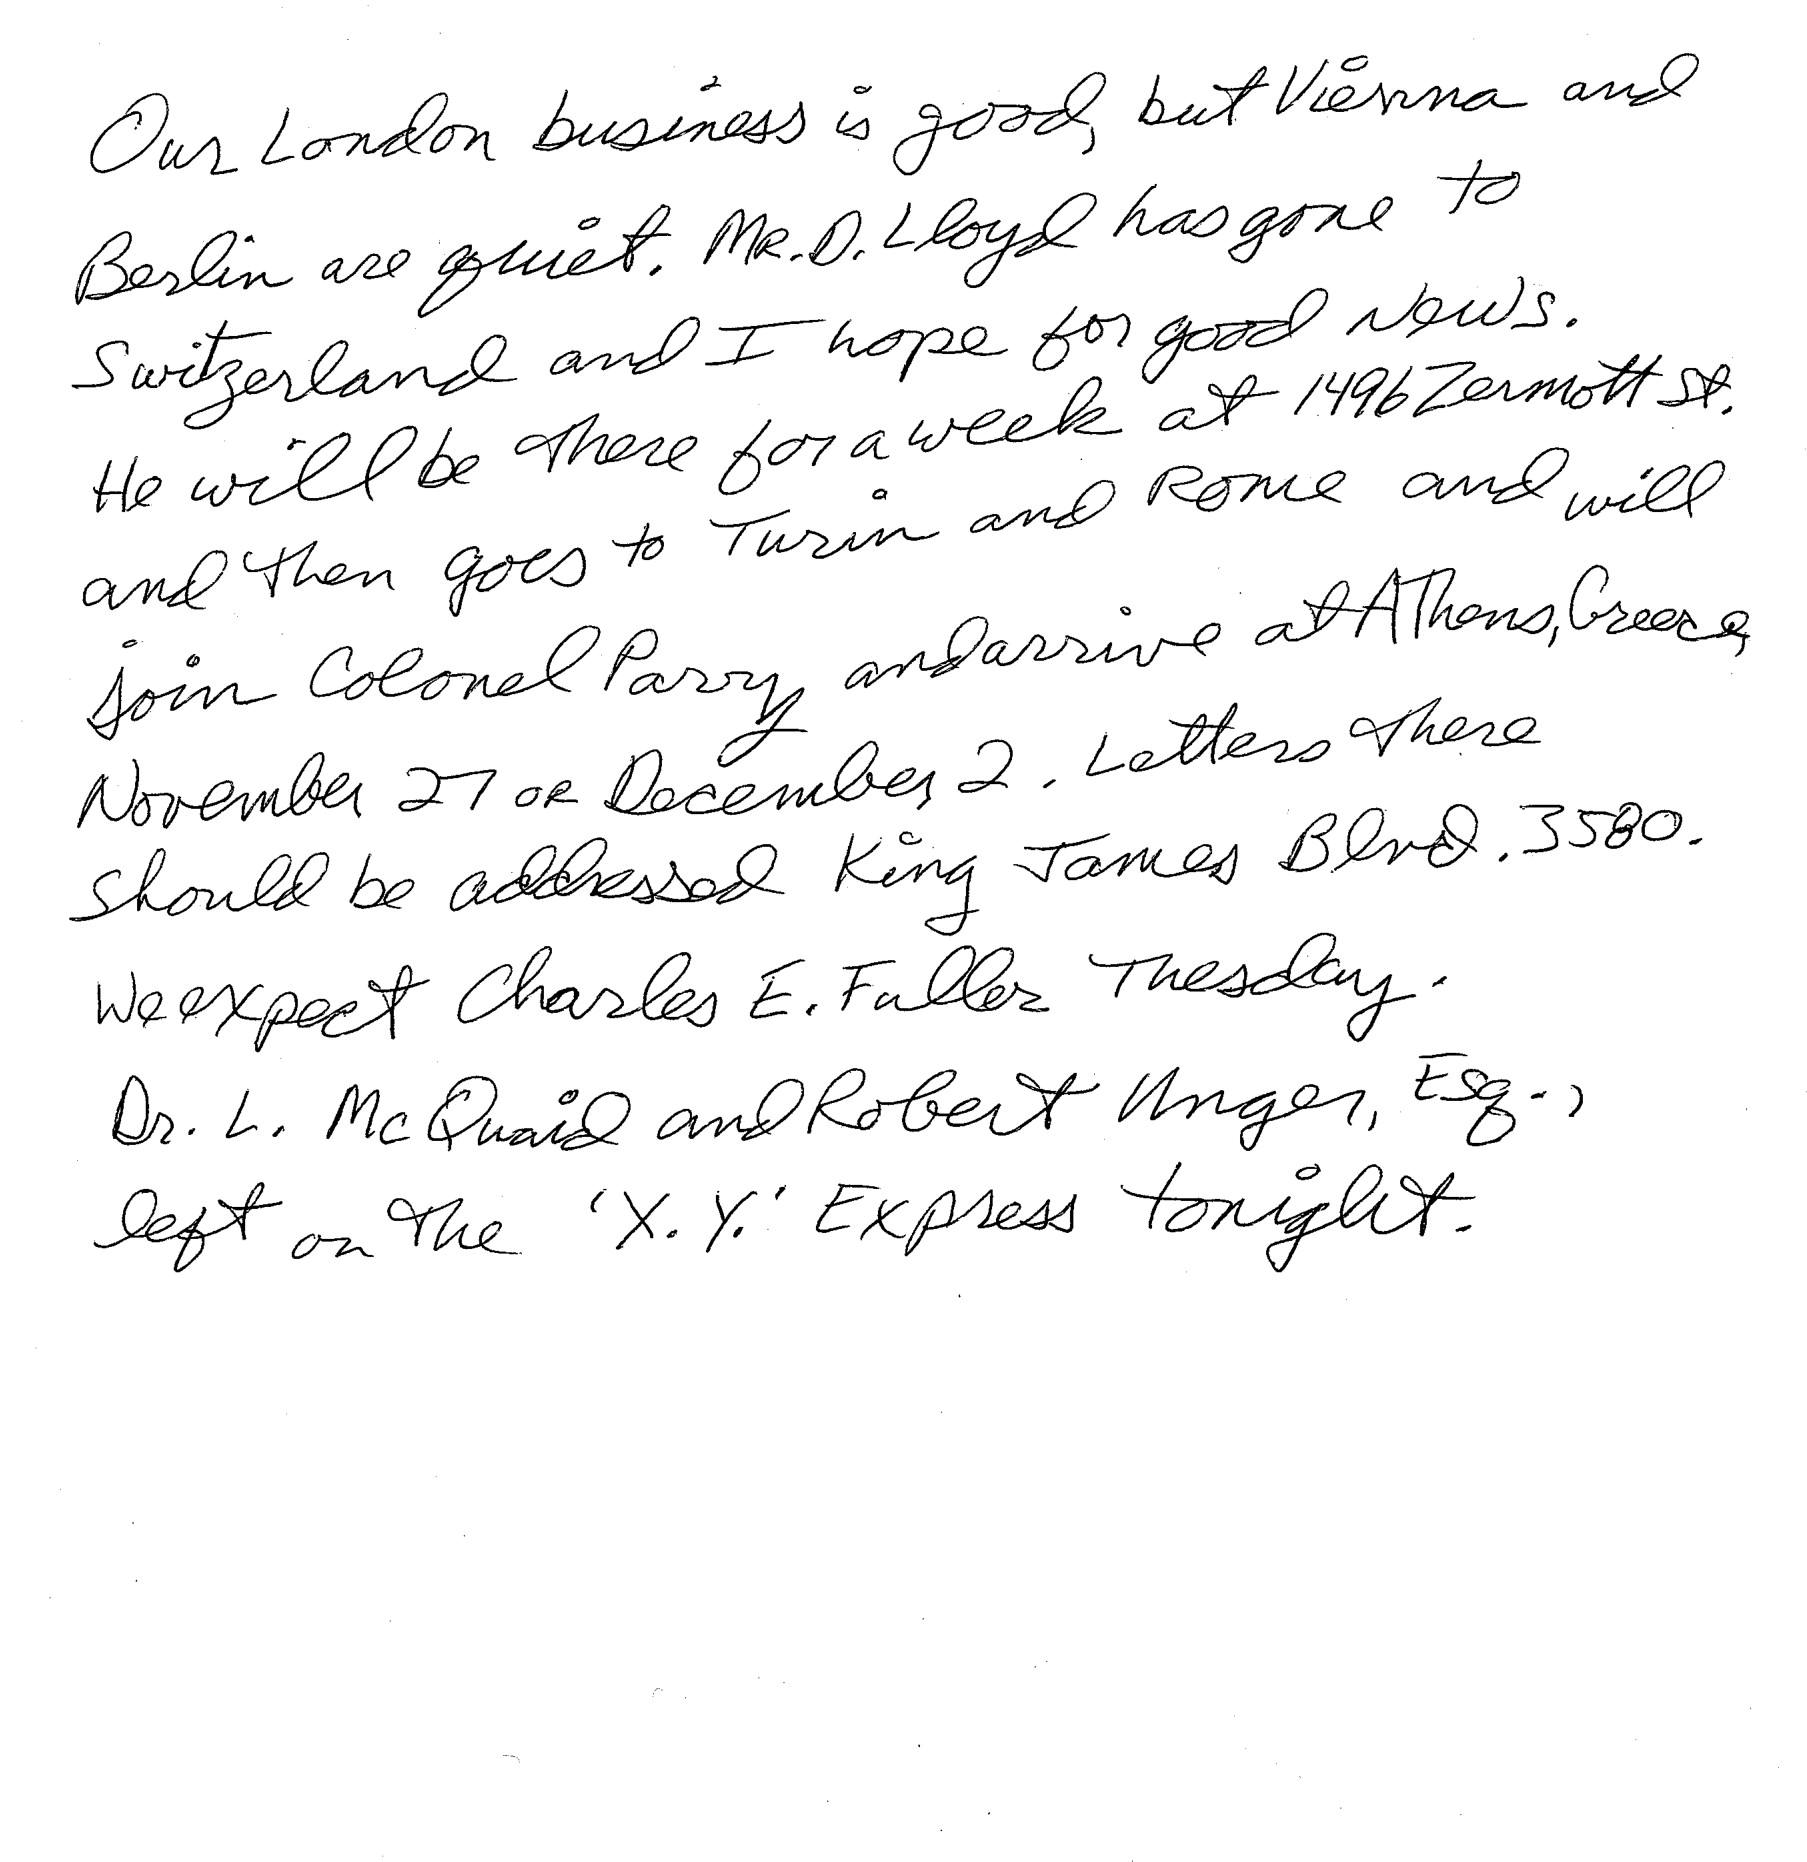 Our London business is good, but Vienna and
Berlin are quiet. Mr. D. Lloyd has gone to
Switzerland and I hope for good news.
He will be there for a week at 1496 Zermott St.
and then goes to Turin and Rome and will
join Colonel Parry and arrive at Athens, Greece,
November 27 or December 2. Letters there
should be addressed King James Blvd. 3580.
We expect Charles E. Fuller Tuesday.
Dr. L. McQuaid and Robert Unger, Esq.,
left on the 'X.Y.' Express tonight.